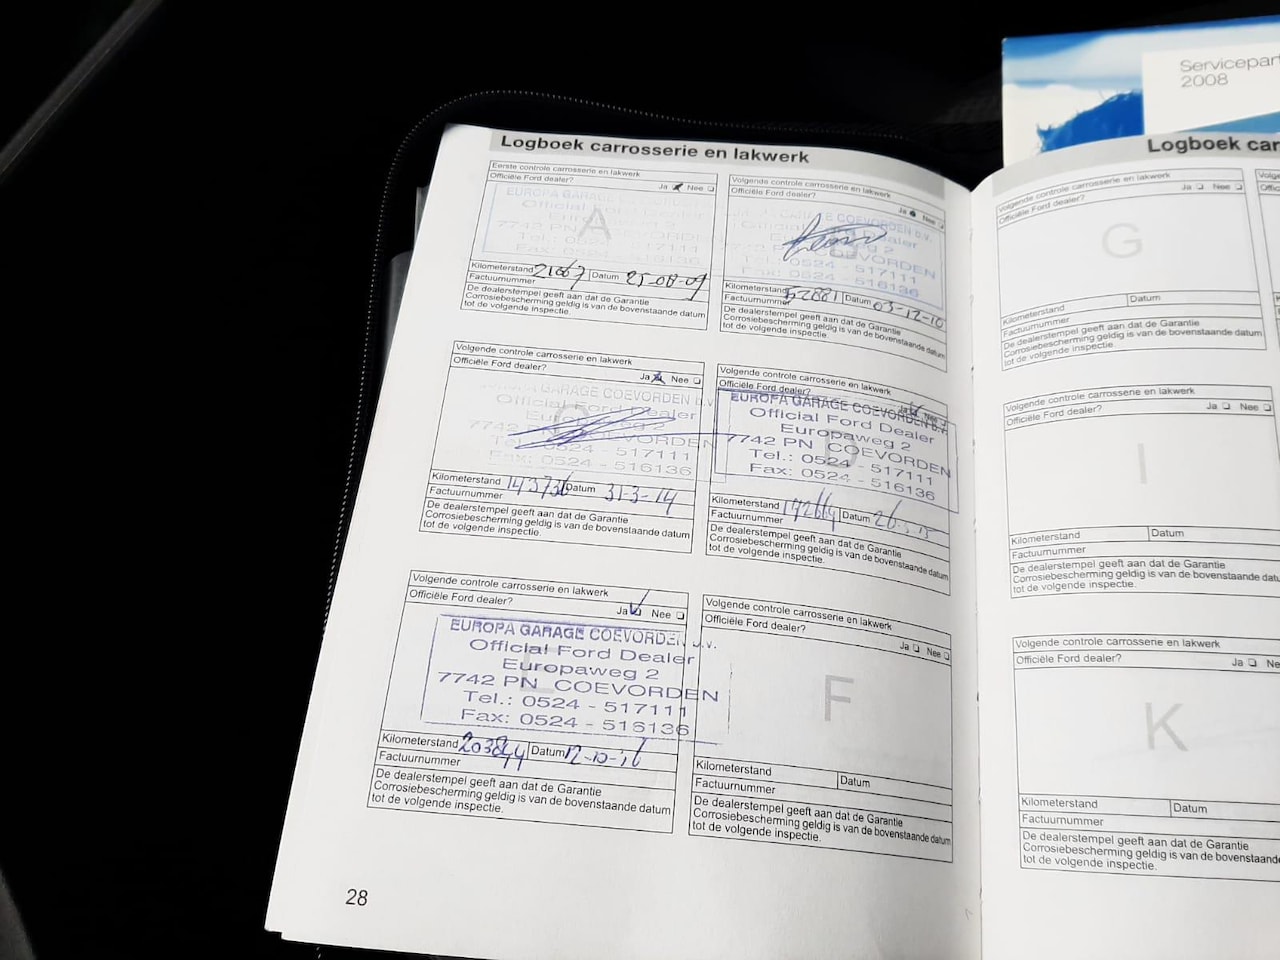 Servicepart
2008
Logboek carrosserie en lakwerk
Eerste controle carrosserie en lakwerk
Officiële Ford dealer? Ja Nee
A
EUROPA GARAGE
Official Ford Dealer
7742 PN COEVORDEN
Tel.: 0524 - 517111
Fax: 0524 - 516136
Kilometerstand 21067 Datum 25-08-09
Factuurnummer
De dealerstempel geeft aan dat de Garantie
Corrosiebescherming geldig is van de bovenstaande datum
tot de volgende inspectie.
Volgende controle carrosserie en lakwerk
Officiële Ford dealer? Ja Nee
B
GARAGE COEVORDEN b.v.
Official Ford Dealer
Europaweg 2
7742 PN COEVORDEN
Tel.: 0524 - 517111
Fax: 0524 - 516136
Kilometerstand 52881 Datum 03-12-10
Factuurnummer
De dealerstempel geeft aan dat de Garantie
Corrosiebescherming geldig is van de bovenstaande datum
tot de volgende inspectie.
Volgende controle carrosserie en lakwerk
Officiële Ford dealer? Ja Nee
C
EUROPA GARAGE COEVORDEN b.v.
Official Ford Dealer
Europaweg 2
7742 PN COEVORDEN
Tel.: 0524 - 517111
Fax: 0524 - 516136
Kilometerstand 143736 Datum 31-3-14
Factuurnummer
De dealerstempel geeft aan dat de Garantie
Corrosiebescherming geldig is van de bovenstaande datum
tot de volgende inspectie.
Volgende controle carrosserie en lakwerk
Officiële Ford dealer? Ja Nee
D
EUROPA GARAGE COEVORDEN b.v.
Official Ford Dealer
Europaweg 2
7742 PN COEVORDEN
Tel.: 0524 - 517111
Fax: 0524 - 516136
Kilometerstand 172664 Datum
Factuurnummer
De dealerstempel geeft aan dat de Garantie
Corrosiebescherming geldig is van de bovenstaande datum
tot de volgende inspectie.
Volgende controle carrosserie en lakwerk
Officiële Ford dealer? Ja Nee
E
EUROPA GARAGE COEVORDEN b.v.
Official Ford Dealer
Europaweg 2
7742 PN COEVORDEN
Tel.: 0524 - 517111
Fax: 0524 - 516136
Kilometerstand 203844 Datum 12-10-16
Factuurnummer
De dealerstempel geeft aan dat de Garantie
Corrosiebescherming geldig is van de bovenstaande datum
tot de volgende inspectie.
Volgende controle carrosserie en lakwerk
Officiële Ford dealer? Ja Nee
F
Kilometerstand Datum
Factuurnummer
De dealerstempel geeft aan dat de Garantie
Corrosiebescherming geldig is van de bovenstaande datum
tot de volgende inspectie.
28
Logboek car
Volgende controle carrosserie en lakwerk
Officiële Ford dealer? Ja Nee
G
Kilometerstand Datum
Factuurnummer
De dealerstempel geeft aan dat de Garantie
Corrosiebescherming geldig is van de bovenstaande datum
tot de volgende inspectie.
Volgende controle carrosserie en lakwerk
Officiële Ford dealer? Ja Nee
I
Kilometerstand Datum
Factuurnummer
De dealerstempel geeft aan dat de Garantie
Corrosiebescherming geldig is van de bovenstaande datum
tot de volgende inspectie.
Volgende controle carrosserie en lakwerk
Officiële Ford dealer? Ja Nee
K
Kilometerstand Datum
Factuurnummer
De dealerstempel geeft aan dat de Garantie
Corrosiebescherming geldig is van de bovenstaande datum
tot de volgende inspectie.